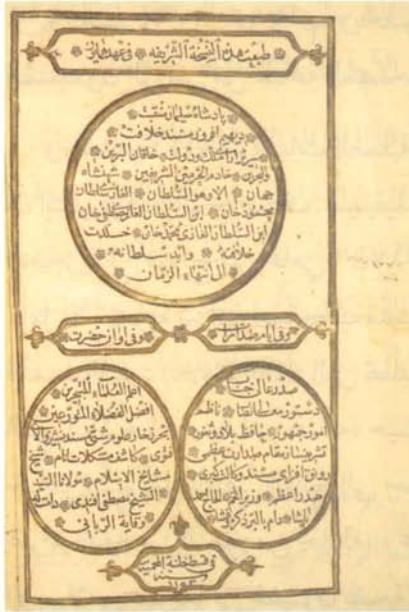 طبعت هذه النسخة الشريفة في عهد
پادشاه سليمان منقبت
افروز مسند خلافت
ملك ودولت خاقان البرين
والبحرين خادم الحرمين الشريفين شهنشاه
جهان الا وهو السلطان الغازي سلطان
محمود خان ابن السلطان الغازي مصطفى خان
ابن السلطان الغازي محمد خان خلدت
خلافته وابد سلطانه
الى انتهاء الزمان
وفي ايام صدارت
وفي اوان حضرت
صدر عالي
دستور معظم ناظم
امور جمهور حافظ بلاد وثغور
مقام صدارت عظمى
رونق افزاي مسند وكالت كبرى
صدر اعظم الحاج احمد
پاشا دام بالبر
اعلم العلماء المتبحرين
افضل الفضلاء المتورعين
بحر زخار علوم شتى مسند
فتوى كاشف مشكلات انام شيخ
مشايخ الاسلام مولانا السيد
الشيخ مصطفى افندي دامت
وقاية الرباني
في قسطنطينية المحمية
سنة